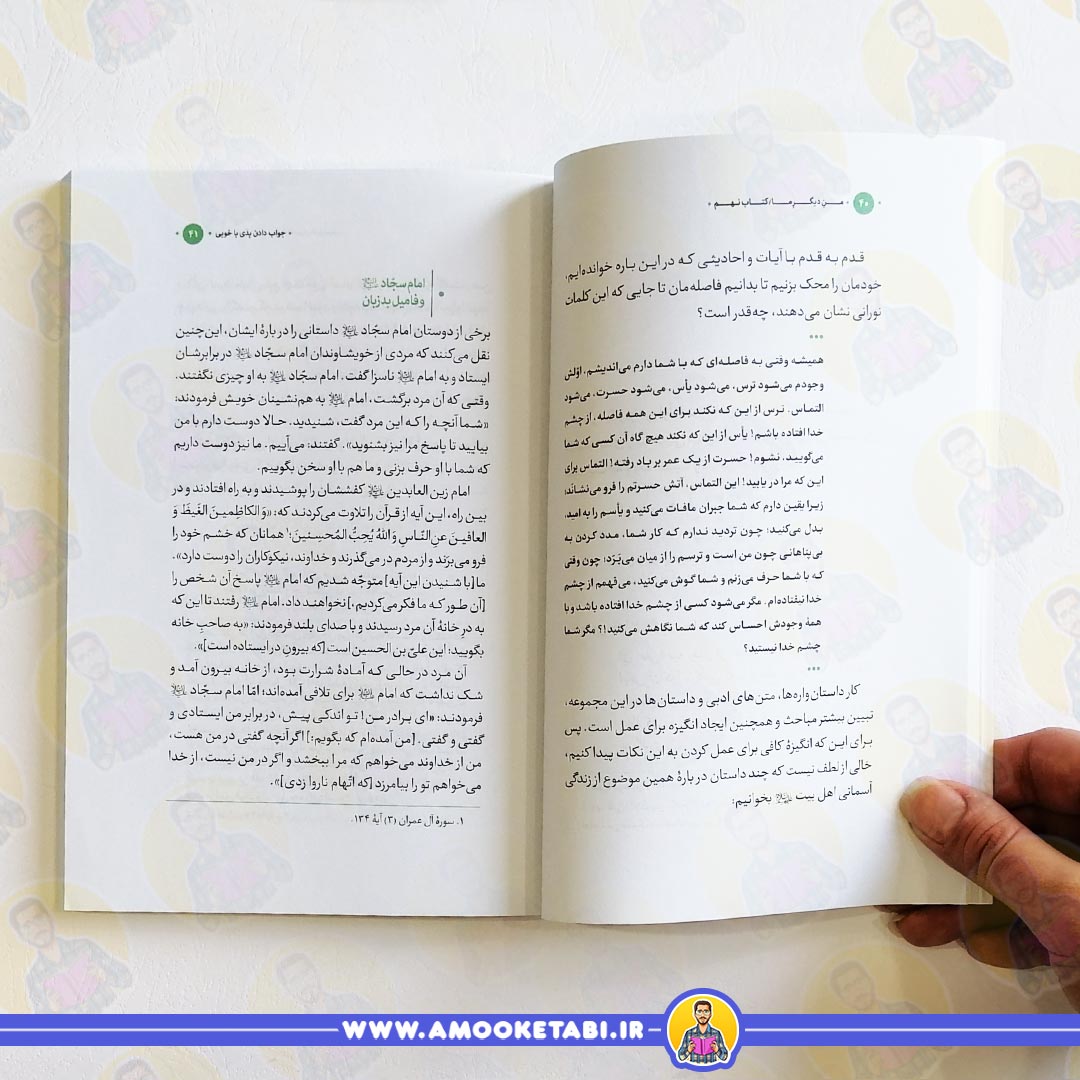 ۴۰ • من دیگرِ ما/کتاب نهم •
قدم به قدم با آیات و احادیثی که در این باره خوانده‌ایم،
خودمان را محک بزنیم تا بدانیم فاصله‌مان تا جایی که این کلمات
نورانی نشان می‌دهند، چه‌قدر است؟
•••
همیشه وقتی به فاصله‌ای که با شما دارم می‌اندیشم، اوّلش
وجودم می‌شود ترس، می‌شود یأس، می‌شود حسرت، می‌شود
التماس. ترس از این که نکند برای این همه فاصله، از چشم
خدا افتاده باشم! یأس از این که نکند هیچ گاه آن کسی که شما
می‌گویید، نشوم! حسرت از یک عمرِ بر باد رفته! التماس برای
این که مرا دریابید! این التماس، آتش حسرتم را فرو می‌نشاند؛
زیرا یقین دارم که شما جبران مافات می‌کنید و یأسم را به امید،
بدل می‌کنید؛ چون تردید ندارم که کار شما، مدد کردن به
بی‌پناهانی چون من است و ترسم را از میان می‌بَرَد؛ چون وقتی
که با شما حرف می‌زنم و شما گوش می‌کنید، می‌فهمم از چشم
خدا نیفتاده‌ام. مگر می‌شود کسی از چشم خدا افتاده باشد و با
همهٔ وجودش احساس کند که شما نگاهش می‌کنید!؟ مگر شما
چشم خدا نیستید؟
•••
کار داستان‌واره‌ها، متن‌های ادبی و داستان‌ها در این مجموعه،
تبیین بیشتر مباحث و همچنین ایجاد انگیزه برای عمل است. پس
برای این که انگیزهٔ کافی برای عمل کردن به این نکات پیدا کنیم،
خالی از لطف نیست که چند داستان دربارهٔ همین موضوع از زندگی
آسمانی اهل بیت بخوانیم:
• جواب دادن بدی با خوبی • ۴۱
امام سجّاد
و فامیل بدزبان
برخی از دوستان امام سجّاد داستانی را دربارهٔ ایشان، این‌چنین
نقل می‌کنند که مردی از خویشاوندان امام سجّاد در برابرشان
ایستاد و به امام ناسزا گفت. امام سجّاد به او چیزی نگفتند.
وقتی که آن مرد برگشت، امام به هم‌نشینان خویش فرمودند:
«شما آنچه را که این مرد گفت، شنیدید. حالا دوست دارم با من
بیایید تا پاسخ مرا نیز بشنوید». گفتند: می‌آییم. ما نیز دوست داریم
که شما با او حرف بزنی و ما هم با او سخن بگوییم.
امام زین العابدین کفششان را پوشیدند و به راه افتادند و در
بین راه، این آیه از قرآن را تلاوت می‌کردند که: «وَ الکاظِمینَ الغَیظَ وَ
العافینَ عنِ النّاسِ وَ اللهُ یُحِبُّ المُحسِنینَ؛۱ همانان که خشم خود را
فرو می‌برند و از مردم در می‌گذرند و خداوند، نیکوکاران را دوست دارد».
ما [با شنیدن این آیه] متوجّه شدیم که امام پاسخ آن شخص را
[آن طور که ما فکر می‌کردیم،] نخواهند داد. امام رفتند تا این که
به در خانهٔ آن مرد رسیدند و با صدای بلند فرمودند: «به صاحبِ خانه
بگویید: این علیّ بن الحسین است [که بیرونِ در ایستاده است]».
آن مرد در حالی که آمادهٔ شرارت بود، از خانه بیرون آمد و
شک نداشت که امام برای تلافی آمده‌اند؛ امّا امام سجّاد
فرمودند: «ای برادر من! تو اندکی پیش، در برابر من ایستادی و
گفتی و گفتی. [من آمده‌ام که بگویم:] اگر آنچه گفتی در من هست،
من از خداوند می‌خواهم که مرا ببخشد و اگر در من نیست، از خدا
می‌خواهم تو را بیامرزد [که اتّهام ناروا زدی]».
۱. سورهٔ آل عمران (۳) آیهٔ ۱۳۴.
WWW.AMOOKETABI.IR